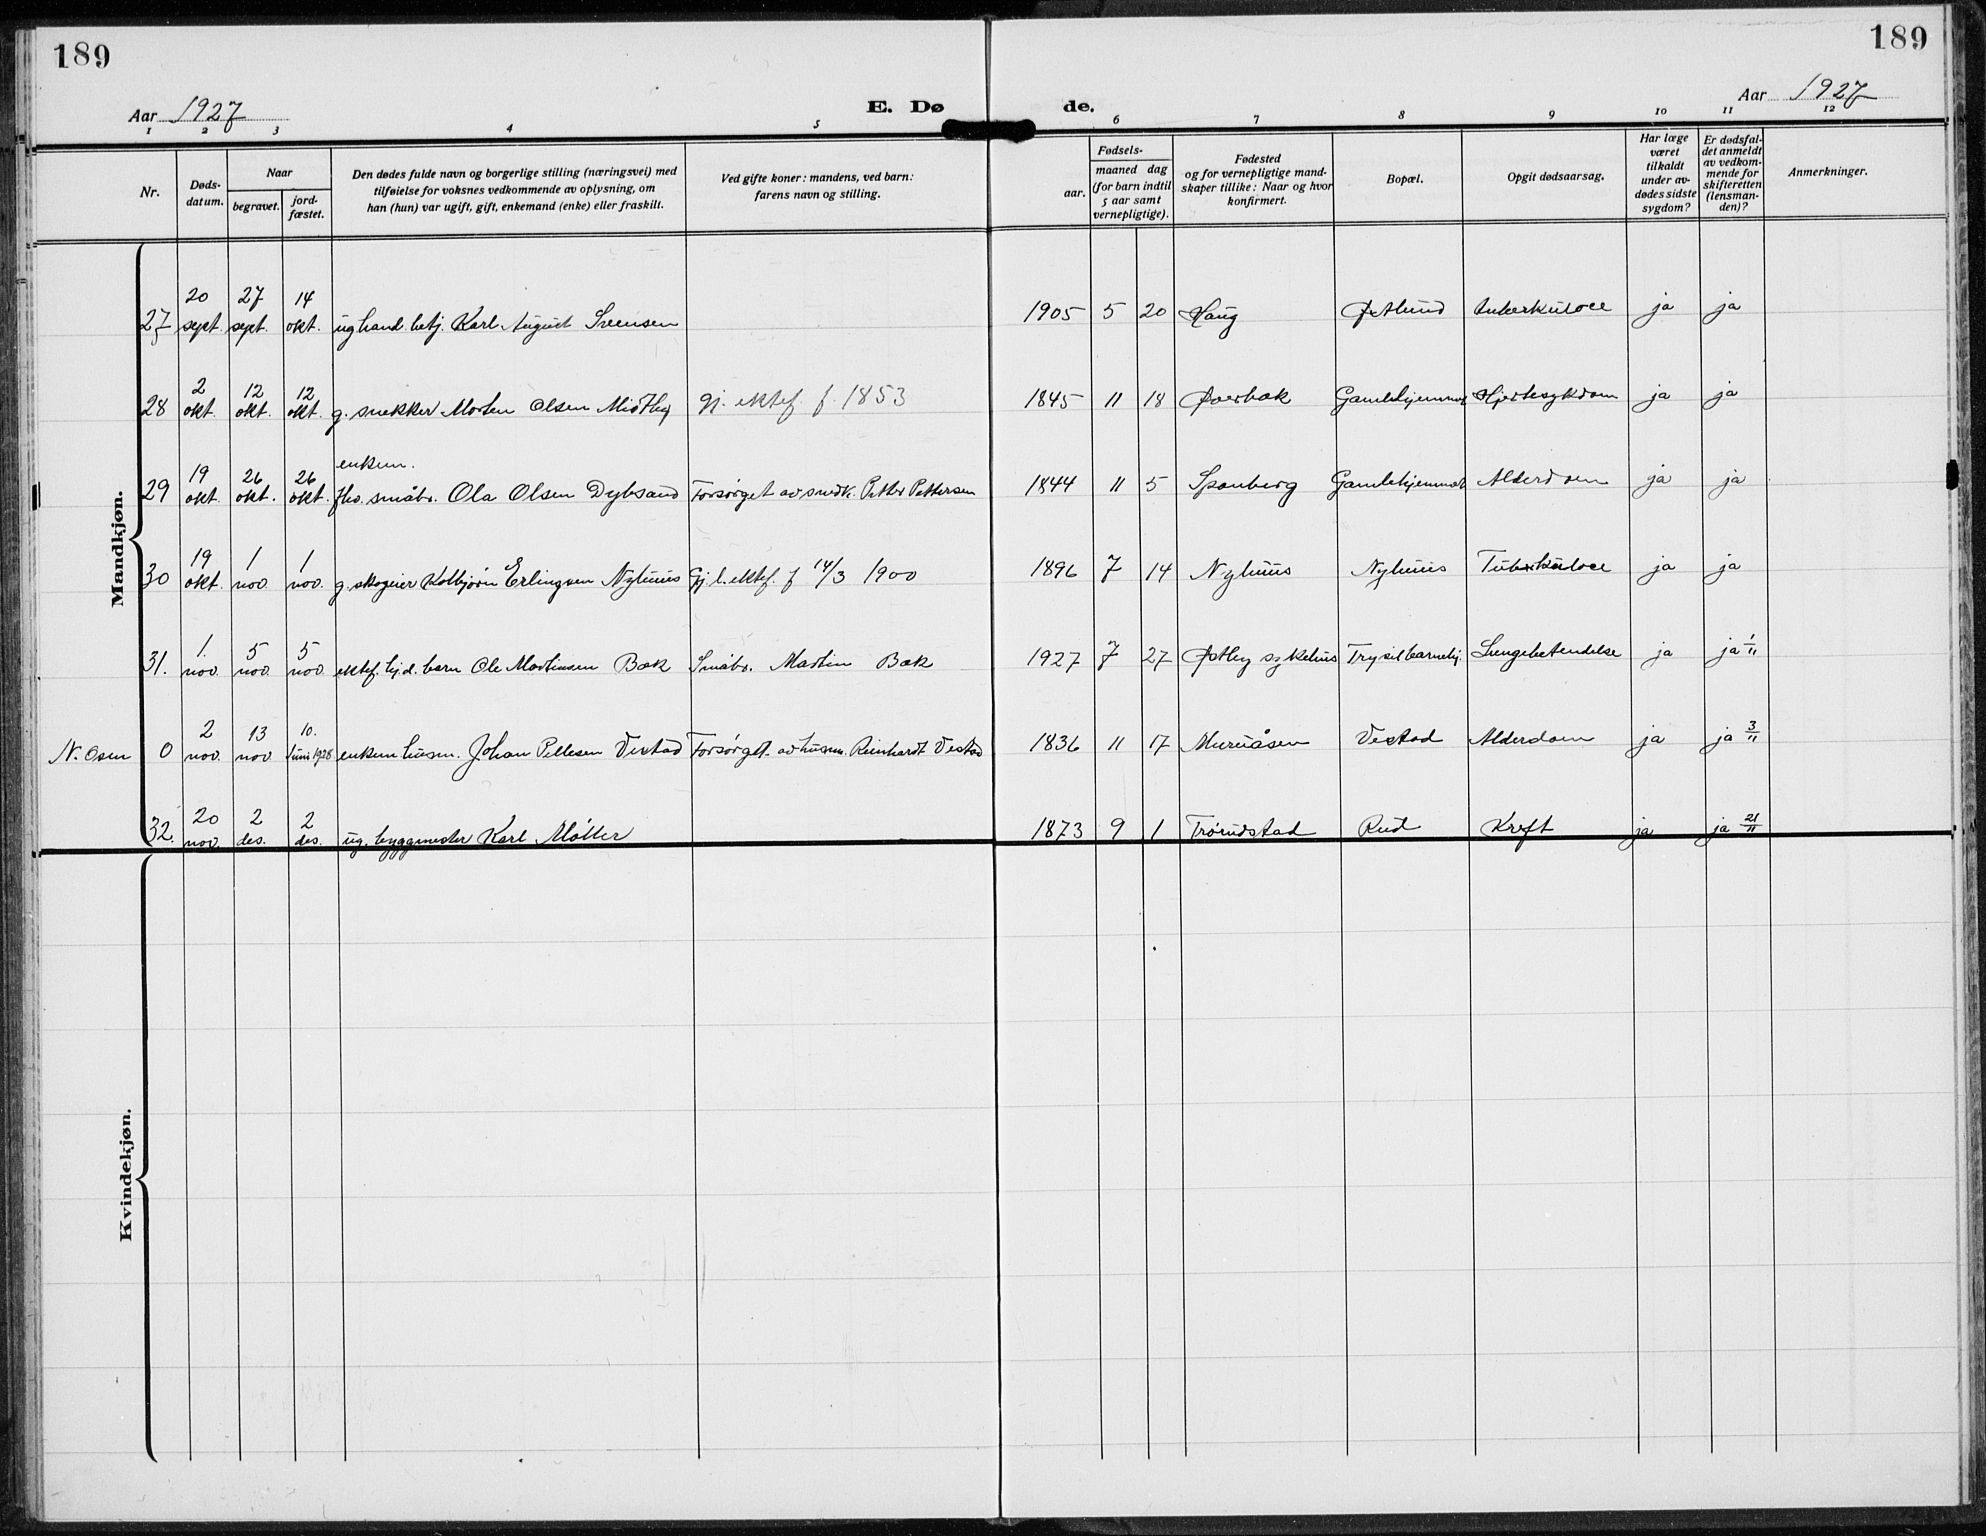 189
189
Aar 1927
E. Dø de.
Aar 1927
1 2 3 4 5 6 7 8 9 10 11 12
Nr.
Døds-
datum.
Naar
begravet.
jord-
fæstet.
Den dødes fulde navn og borgerlige stilling (næringsvei) med
tilføielse for voksnes vedkommende av oplysning, om
han (hun) var ugift, gift, enkemand (enke) eller fraskilt.
Ved gifte koner: mandens, ved barn:
farens navn og stilling.
Fødsels-
aar.
maaned dag
(for barn indtil
5 aar samt
vernepligtige).
Fødested
og for vernepligtige mand-
skaper tillike: Naar og hvor
konfirmert.
Bopæl.
Opgit dødsaarsag.
Har læge
været
tilkaldt
under av-
dødes sidste
sygdom?
Er dødsfal-
det anmeldt
av vedkom-
mende for
skifteretten
(lensman-
den)?
Anmerkninger.
Mandkjøn.
27 20 sept. 27 sept. 14 okt. ug hand. betj. Karl August Svensen 1905 5 20 Haug Østlund tuberkulose ja ja
28 2 okt. 12 okt. 12 okt. g. snekker Morten Olsen Midtby gj. ektef. f. 1853 1845 11 18 Øverbak Gamlehjemmet Hjertesykdom ja ja
enkem.
29 19 okt. 26 okt. 26 okt. fho. småbr. Ola Olsen Dybsand Forsørget av snedk. Petter Pettersen 1844 11 5 Spanberg Gamlehjemmet Alderdom ja ja
30 19 okt. 1 nov. 1 nov. g. skogeier Kolbjørn Erlingsen Nyhuus Gj. l. ektef. f 14/3 1900 1896 7 14 Nyhuus Nyhuus Tuberkulose ja ja
31. 1. nov. 5 nov. 5 nov. ektef. hj.d. barn Ole Martinsen Bæk Småbr. Martin Bæk 1927 7 27 Østby sykehus Trysil barnehj. Lungebetendelse ja ja 1/11
N. Osen 0 2 nov. 13 nov. 10. Juni 1928 enkem husm. Johan Pettersen Vestad Forsørget av husm. Reinhardt Vestad 1836 11 17 Muruåsen Vestad Alderdom ja ja 3/11
32. 20 nov. 2 des. 2 des. ug. byggmester Karl Møller 1873 9 1 Trørudstad Rud Kreft ja ja 21/11
Kvindekjøn.